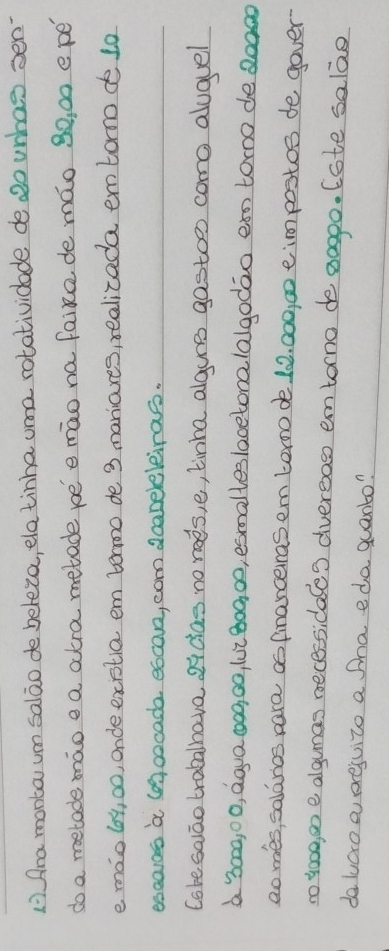 1-) Ana montou um salão de beleza, ela tinha uma rotatividade de 20 unhas sen-
do a metade mão e a otra metade pé e mão na faixa de mão 32,00 e pé
e mão 64,00, onde existia em torno de 3 maniares, realizada em torno de 10
escovas à 69,00 cada escova, com 2 cabeleleiras.
Este salão trabalhava 27 dias no mês, e, tinha alguns gastos como aluguel
à 3000,00, água 600,00, luz 800,00, esmaltes/acetona/algodão em torno de
ao mês, salários para as financeiras em torno de 12.000,00 e impostos de gover-
no 3000,00 e algumas necessidades diversas em torno de Este salão
da lucro ou prejuizo a Ana e da quanto?